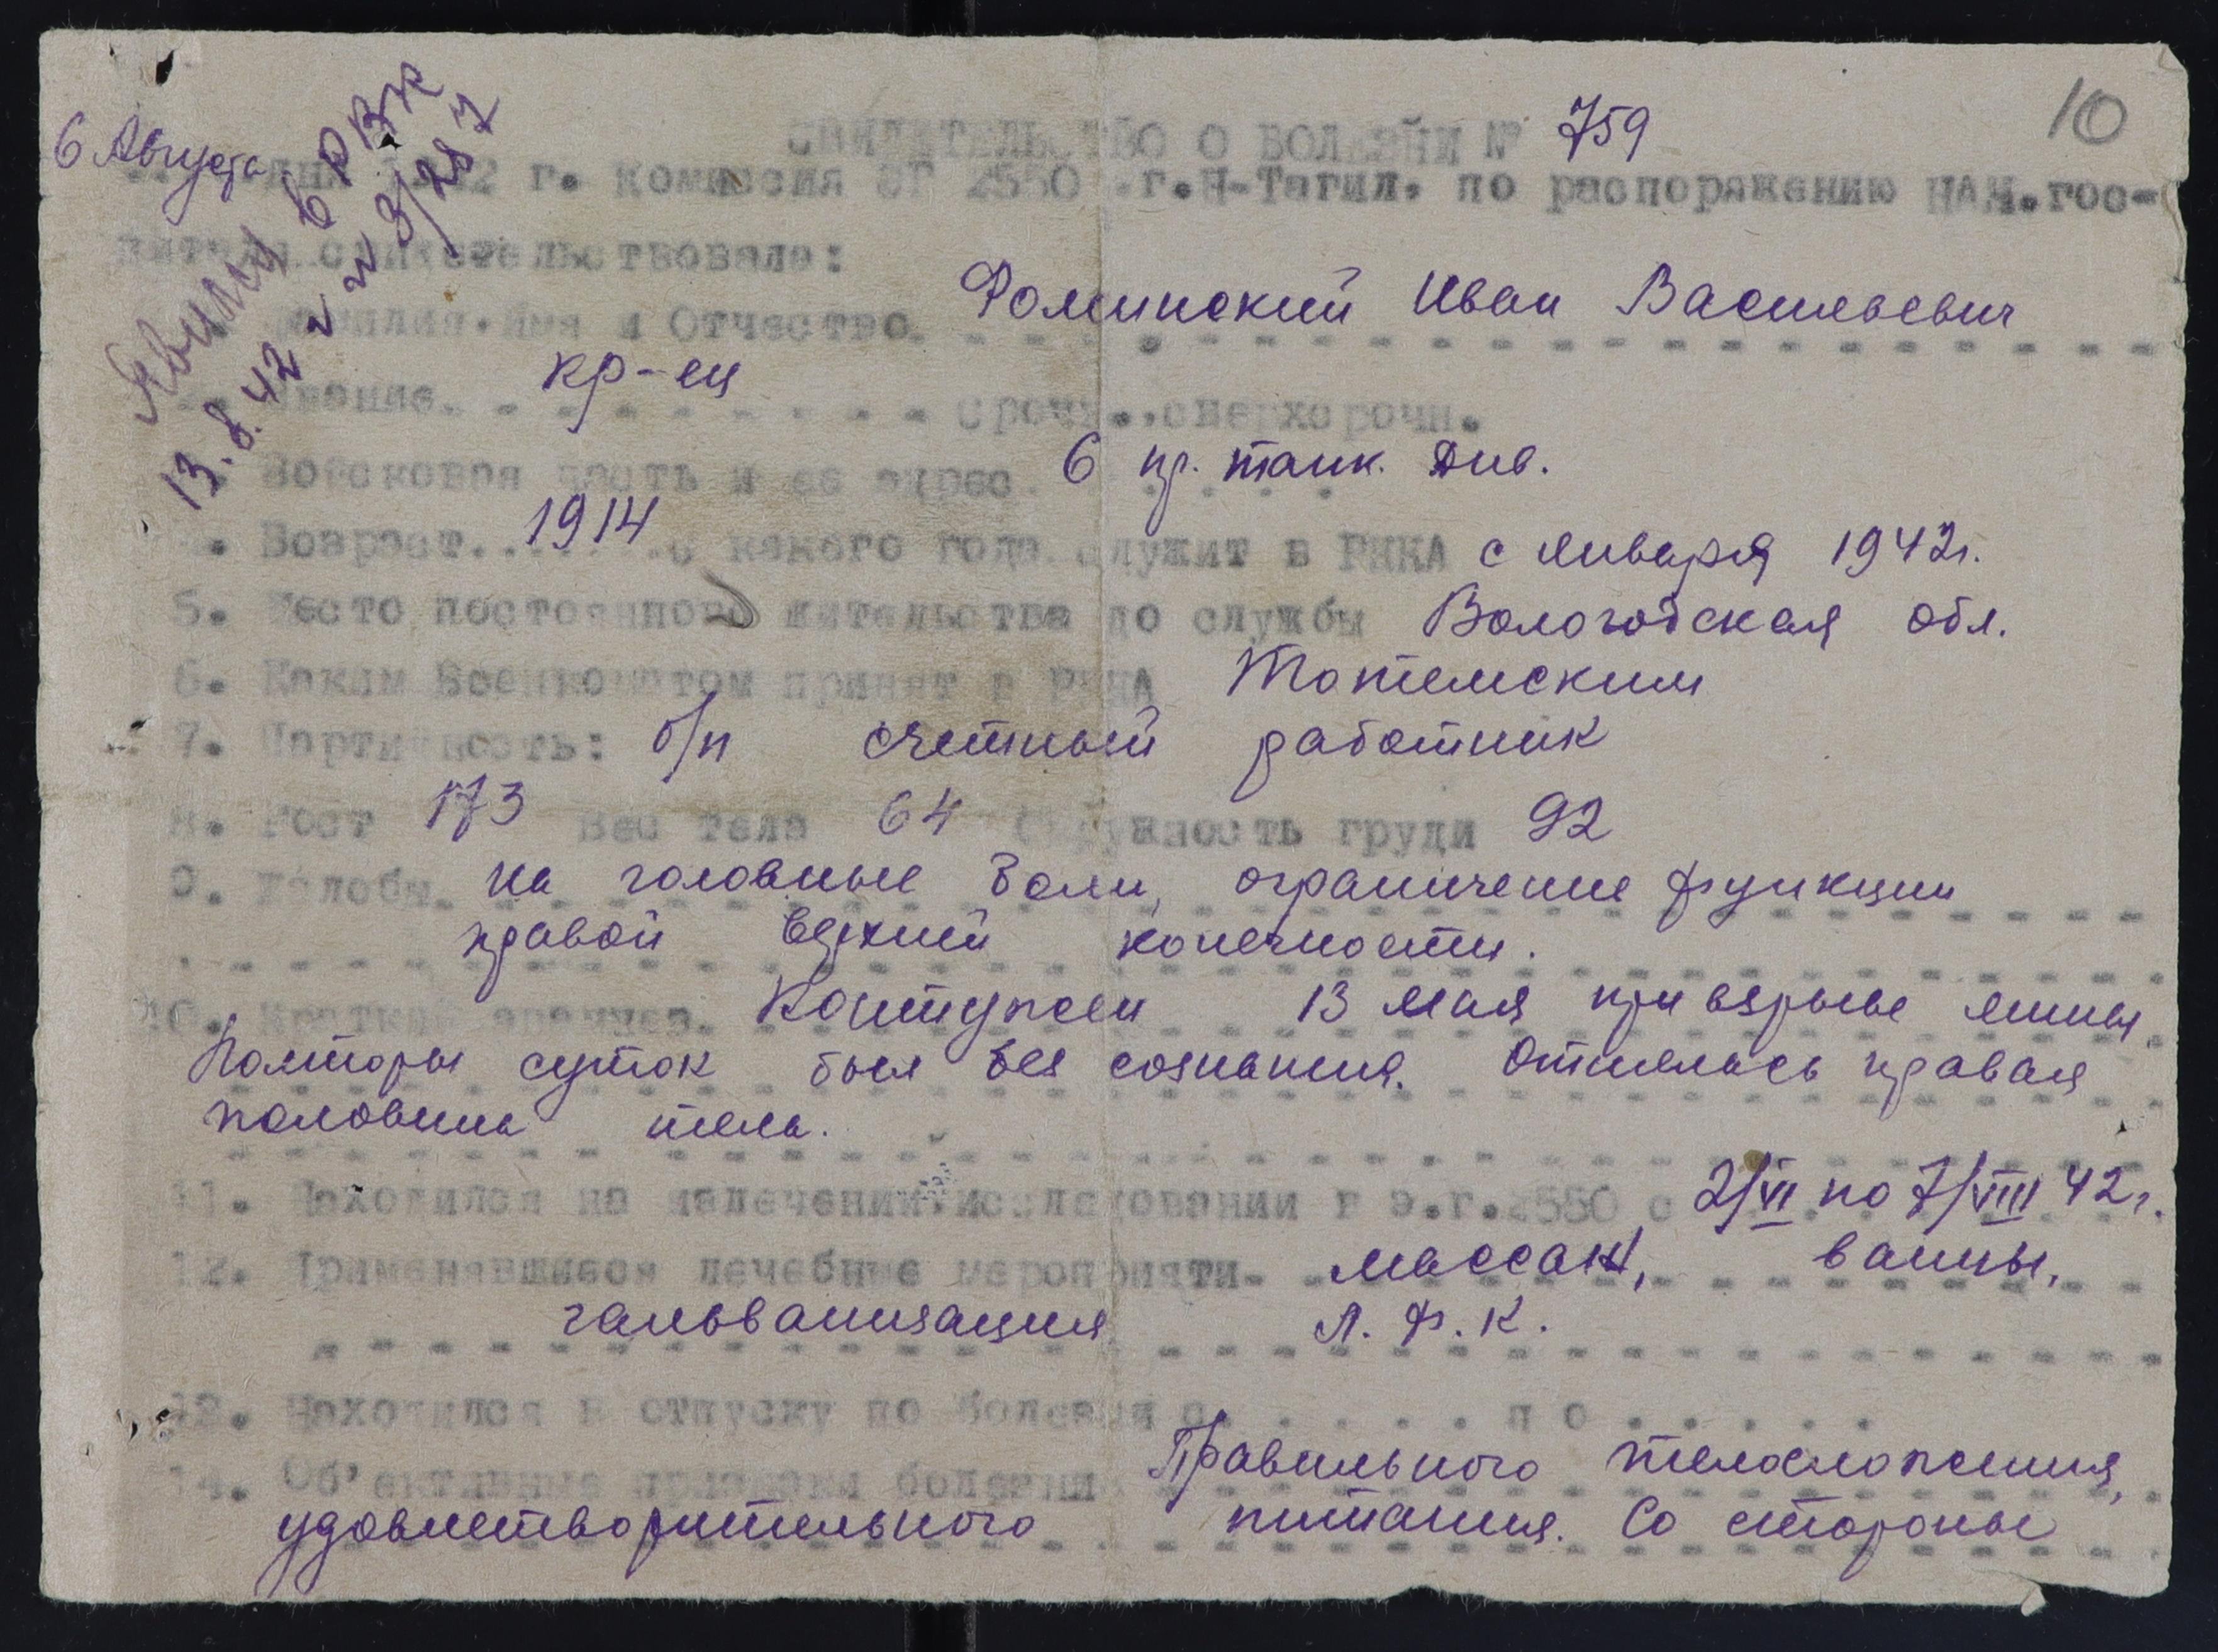 10
СВИДЕТЕЛЬСТВО О БОЛЕЗНИ № 759
6 Августа дня 1942 г. комиссия ЭГ 2550 .г.Н-Тагил. по распоряжению НАЧ.гос-
питаля свидетельствовала:
Явился в РВК
13.8.42 г
Фамилия. Имя и Отчество. Фоминский Иван Васильевич
Звание. кр-ец срочн.,сверхсрочн.
Войсковая часть и ее адрес 6 пр. танк. див.
Возраст. 1914 с какого года служит в РККА с января 1942г.
5. Место постоянного жительства до службы Вологодская обл.
6. Каким Военкоматом принят в РККА Тотемским
7. Партийность: б/п счетный работник
8. Рост 173 Вес тела 64 Окружность груди 92
9. Жалобы. на головные боли, ограничение функции
правой верхней конечности.
10. Краткий анамнез. Контужен 13 мая при взрыве мины.
Полторы суток был без сознания. Отнялась правая
половина тела.
11. Находился на излечении,исследовании в э.г.2550 с 2/VI по 7/VIII 42г.
12. Применявшиеся лечебные мероприяти- массаж, ванны,
гальванизация Л. Ф. К.
12. Находился в отпуску по болезни с. . . . . п о . . . . .
14. Об'ективные признаки болезни Правильного телосложения,
удовлетворительного питания. Со стороны